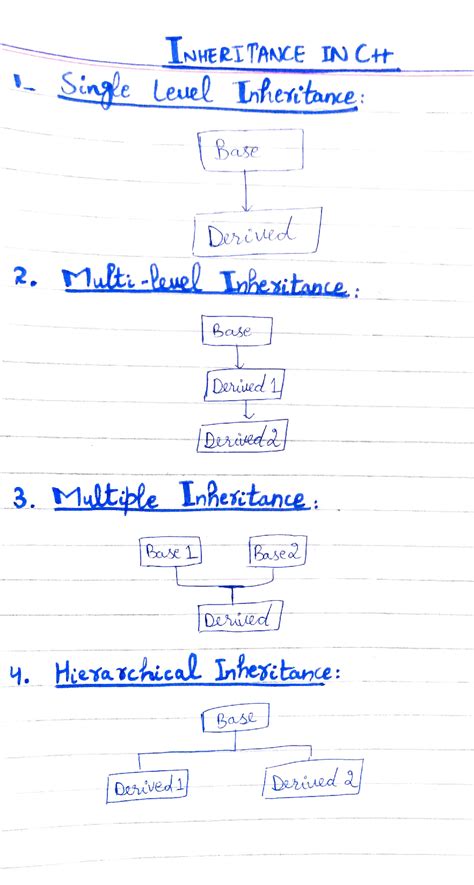 INHERITANCE IN C++
1- Single Level Inheritance:
Base
Derived
2. Multi-level Inheritance:
Base
Derived 1
Derived 2
3. Multiple Inheritance:
Base 1 Base 2
Derived
4. Hierarchical Inheritance:
Base
Derived 1 Derived 2